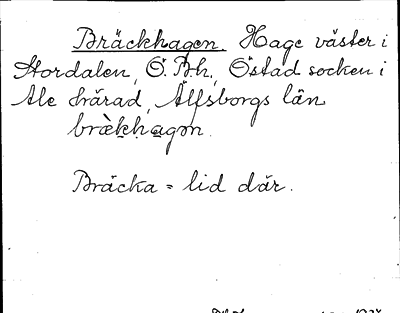 Bräckhagen. Hage väster i
Stordalen, Ö. B.h., Östad socken i
Ale härad, Älfsborgs län
brækhagɷn.
Bräcka = lid där.